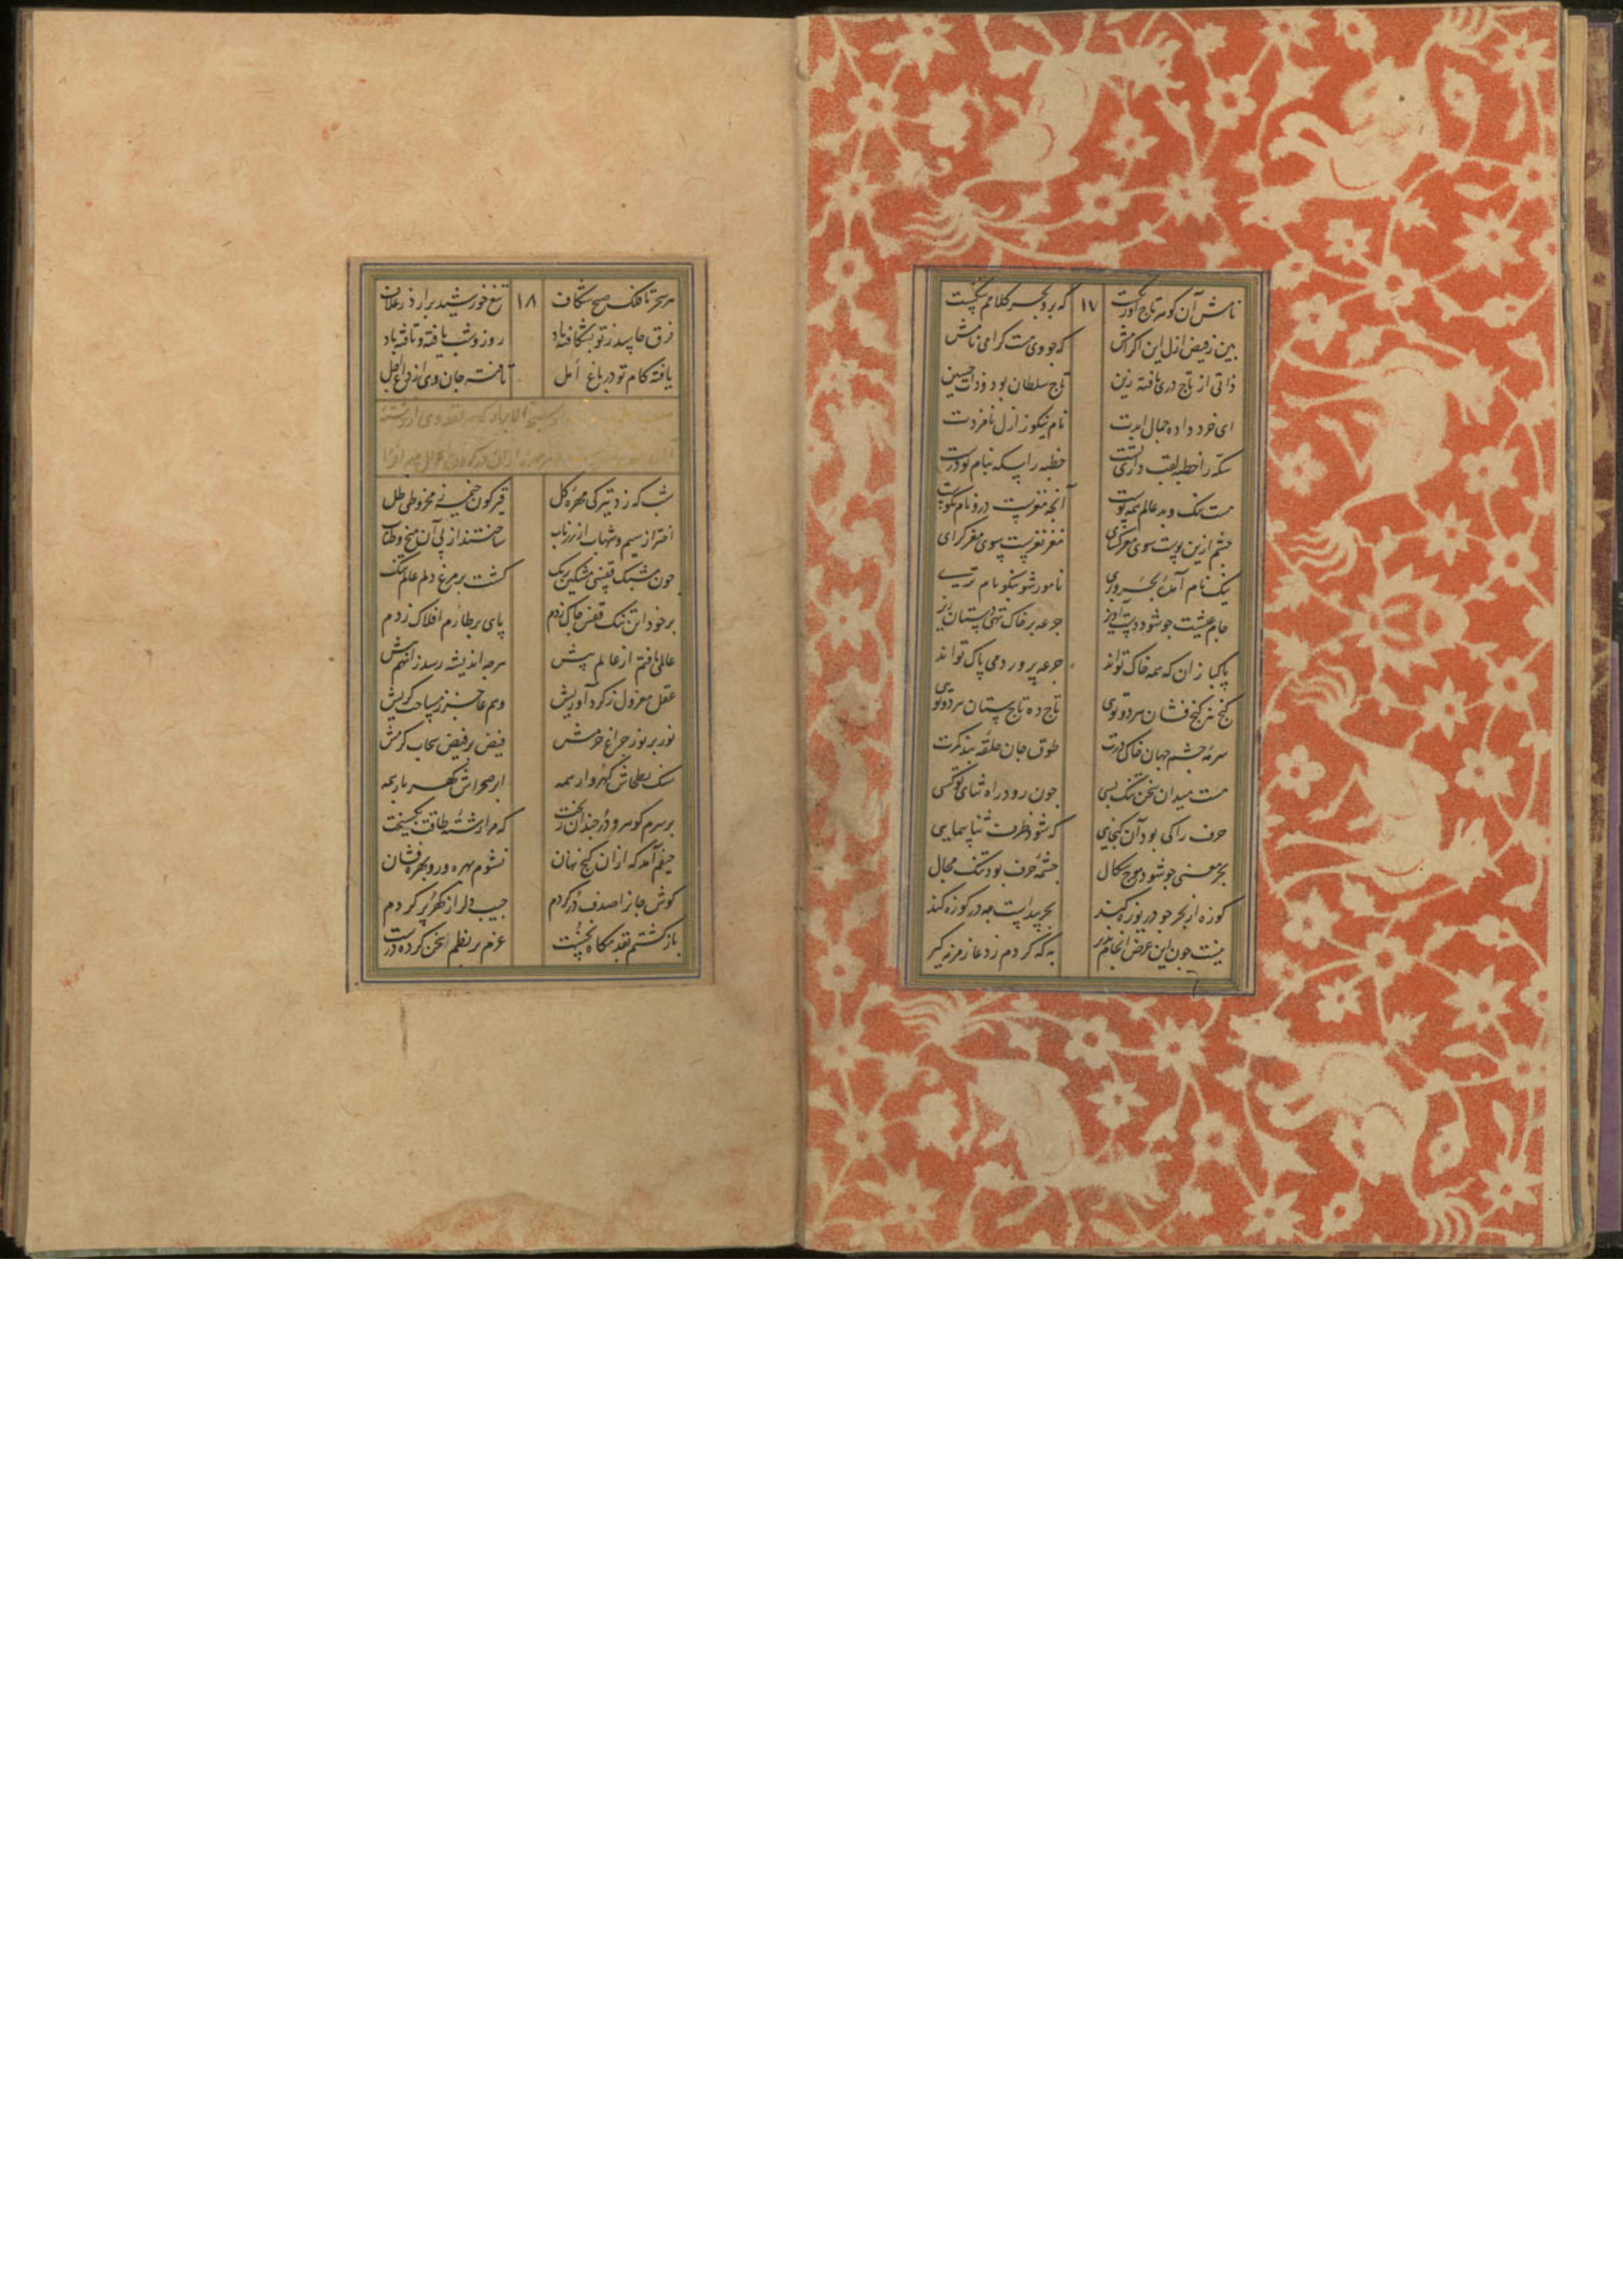 که برو بحر کلامم ۱۷ نامش آن کوهر تاج
بین ز فیض ازل این اکرامش که جو وی هست کرامی نامش
ذاتی از تاج دری یافته زین تاج سلطان بود و ذات حسین
ای خرد داده جمال ابدت نام نیکو ز ازل نامزدت
سکه را خطبه لقب خطبه را سکه بنام تو درست
هست نیک و بد عالم همه پوست آنچه مغزست درو نام نکوست
چشم ازین پوست سوی مغز کشای مغز نغزست سوی مغز کرای
نیک نام آمده نامور شو بنکو نام تری
جام عیشت جو شود جرعه بر خاک تهی دستان ریز
پاکبازان که همه خاک تواند جرعه پرورد می پاک تواند
کنج نه کنج فشان هر دو توی تاج ده تاج ستان هر دو توی
سرمه چشم جهان خاک درت طوق جان حلقه بند کمرت
هست میدان سخن تنک بسی جون رود راه ثنای تو کسی
حرف را کی بود آن کنجایی که شود ظرف ثنا پیمایی
بحر معنی جو شود موج سکال چشمه حرف بود تنک مجال
کوزه از بحر جو دریوزه کند بحر پیداست چه در کوزه کند
نیست جون این غرض انجام پذیر به که کردم ز دعا زمزمه کیر
هر سحر تا فلک صبح شکاف ۱۸ تیغ خورشید برارد ز غلاف
فرق حاسد ز تو بشکافته باد روز و شب یافته و تافته باد
یافته کام تو در باغ امل تافته جان وی از داغ اجل
شب که زد تیرکی مهره کل قیرکون خیمه مخروطی ظل
اختر از سیم و شهاب از زر ناب ساختند از پی آن میخ و طناب
جون مشبک قفسی مشکین رنک کشت بر مرغ دلم عالم تنک
بر خود این تنک قفس چاک زدم پای بر طارم افلاک زدم
عالمی یافتم از عالم پیش هرچه اندیشه رسد زانهم بیش
عقل معزول ز کرد آوریش وهم عاجز ز مساحت کریش
نور بر نور چراغ حرمش فیض بر فیض سحاب کرمش
سنک بطحاش کهروار همه ابر صحراش کهر بار همه
بر سرم کوهر و در چندان ریخت که مرا رشته طاقت بکسیخت
حیفم آمد که ازان کنج نهان نشوم بهره ور و بهره فشان
کوش جانرا صدف در کردم جیب دل را ز کهر پر کردم
باز کشتم بقدمکاه نخست عزم بر نظم سخن کرده درست